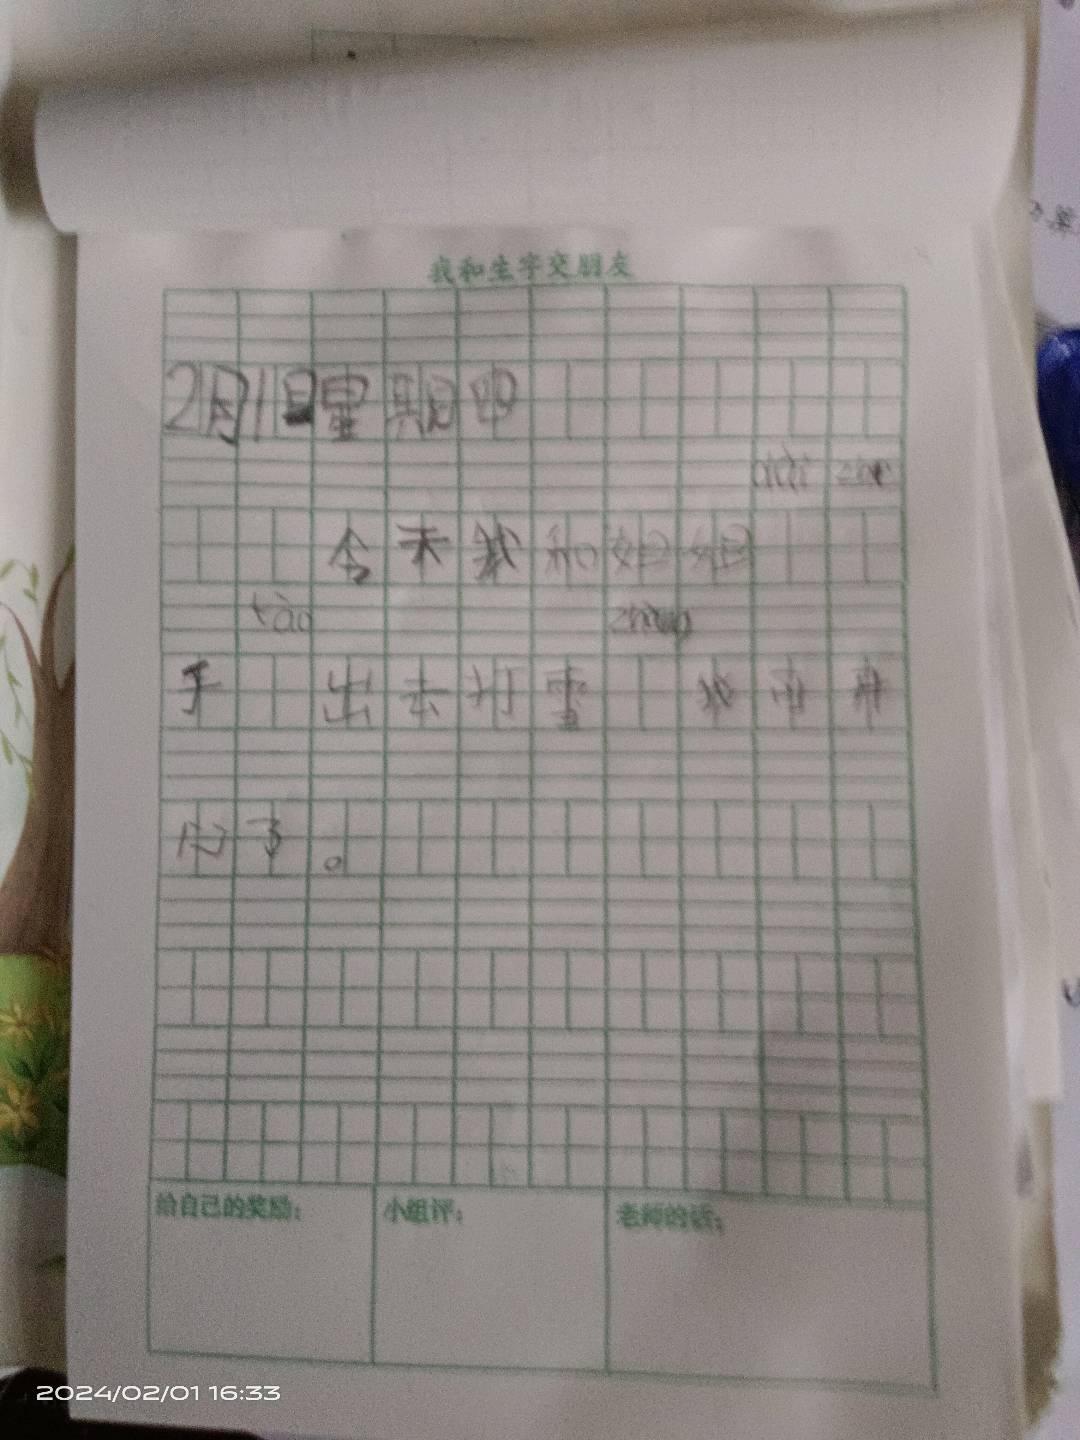 我和生字交朋友
2月1日星期四
dài
今天我和姐姐
tào
手 出去打雪
了。
给自己的奖励：
小组评：
老师的话：
2024/02/01 16:33